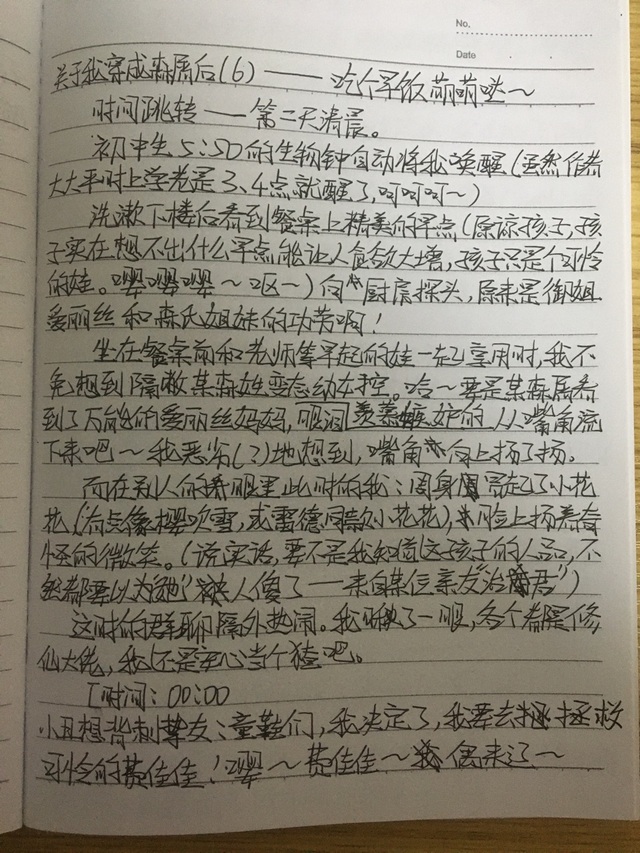 No.
Date
关于我穿成森属后(6)——吃个早饭萌萌哒~
时间跳转——第二天清晨。
初中生5:50的生物钟自动将我唤醒(虽然作者
大大平时上学光是3、4点就醒了,呵呵呵~)
洗漱下楼后看到餐桌上精美的早点(原谅孩子,孩
子实在想不出什么早点能让人食欲大增,孩子只是个可怜
的娃。嘤嘤嘤~呕~)向厨房探头,原来是御姐
爱丽丝和森氏姐妹的功劳啊!
坐在餐桌前和老师等早起的娃一起享用时,我不
免想到隔敝某森姓变态幼女控。哈~要是某森属看
到了万能的爱丽丝妈妈,眼泪羡慕嫉妒的从嘴角流
下来吧~我恶劣(?)地想到,嘴角向上扬了扬。
而在别人的眼里此时的我:周身冒起了小花
花(有点像樱吹雪,或雷德同款小花花),脸上扬着奇
怪的微笑。(说实话,要不是我知道这孩子的人品,不
然都要以为她"被人傻了——来自某位亲友"治君")
这时的群聊隔外热闹。我瞅了一眼,各个都是修
仙大佬,我还是安心当个猹吧。
[时间:00:00
小丑想背刺挚友:童鞋们,我决定了,我要去拯救
可怜的费佳佳!嘤~费佳佳~偶来了~